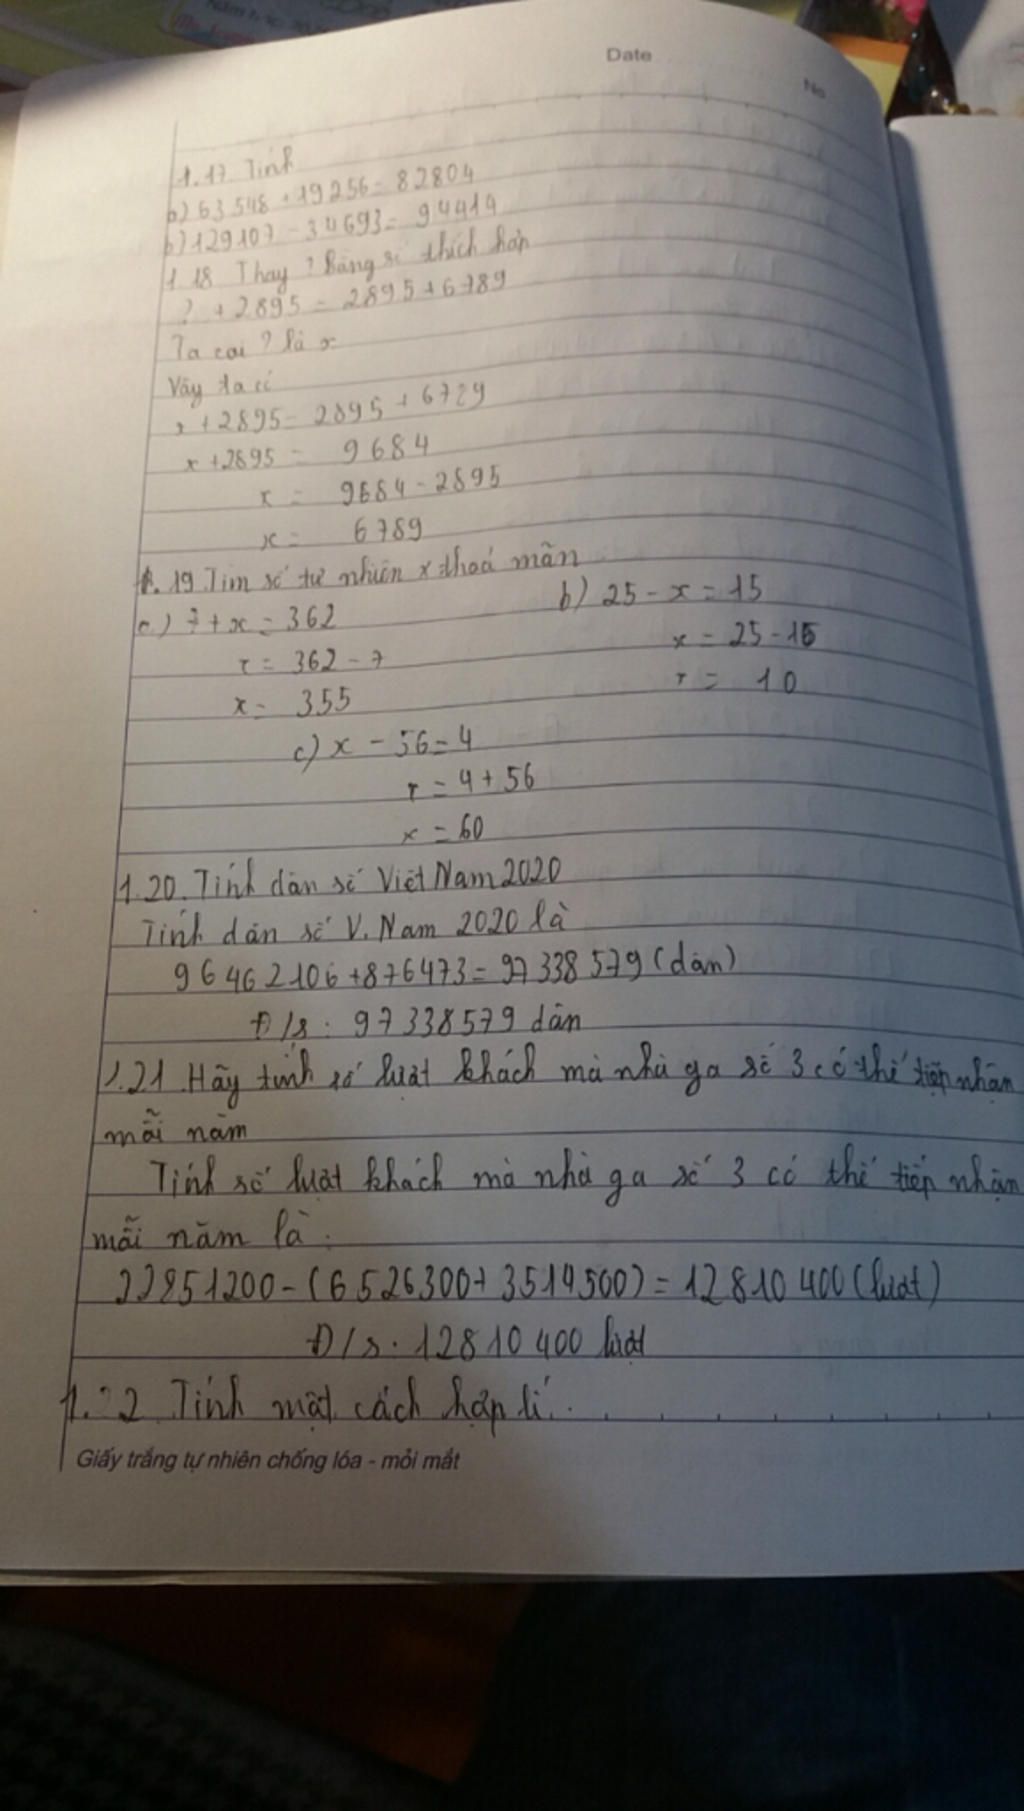 Date
No
1.17 Tính
a) 63 548 + 19256 = 82804
b) 129107 - 34693 = 94414
1.18 Thay ? Bằng số thích hợp
? + 2895 = 2895 + 6789
Ta coi ? là x
Vậy ta có
x + 2895 = 2895 + 6789
x + 2895 = 9684
x = 9684 - 2895
x = 6789
1.19 Tìm số tự nhiên x thoả mãn
a) 7 + x = 362 b) 25 - x = 15
x = 362 - 7 x = 25 - 15
x = 355 x = 10
c) x - 56 = 4
x = 4 + 56
x = 60
1.20. Tính dân số Việt Nam 2020
Tính dân số V. Nam 2020 là
96 462 106 + 876473 = 97 338 579 (dân)
Đ/s: 97 338 579 dân
1.21 Hãy tính số lượt khách mà nhà ga số 3 có thể tiếp nhận
mỗi năm
Tính số lượt khách mà nhà ga số 3 có thể tiếp nhận
mỗi năm là:
22851200 - (6 526 300 + 3514 500) = 12 810 400 (lượt)
Đ/s. 12810 400 lượt
1.22 Tính một cách hợp lí.
Giấy trắng tự nhiên chống lóa - mỏi mắt